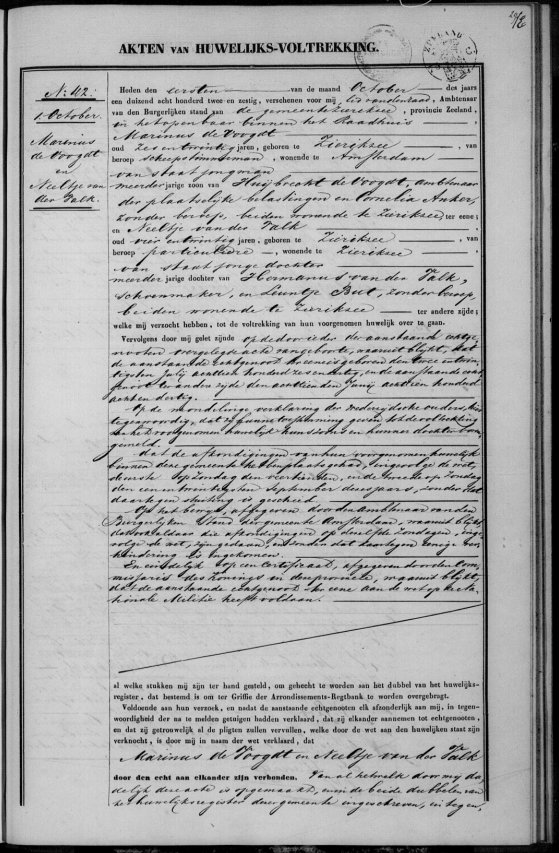 AKTEN VAN HUWELIJKS-VOLTREKKING.
N: 42.
1 October.
Marinus
de Voogdt
en
Neeltje van
der Valk.
Heden den eersten van de maand October des jaars
een duizend acht honderd twee en zestig, verschenen voor mij, Ambtenaar
van den Burgerlijken stand van de gemeente Zierikzee, provincie Zeeland,
in het openbaar binnen het Raadhuis
Marinus de Voogdt
oud zes en twintig jaren, geboren te Zierikzee, van
beroep scheepstimmerman, wonende te Amsterdam
van staat jongman
meerder jarige zoon van Huijbrecht de Voogdt, ambtenaar
der plaatselijke belastingen en Cornelia Anker,
zonder beroep, beiden wonende te Zierikzee ter eene;
en Neeltje van der Valk
oud vier en twintig jaren, geboren te Zierikzee, van
beroep particuliere, wonende te Zierikzee
van staat jonge dochter
meerder jarige dochter van Hermanus van der Valk,
schoenmaker, en Leuntje But, zonder beroep,
beiden wonende te Zierikzee ter andere zijde;
welke mij verzocht hebben, tot de voltrekking van hun voorgenomen huwelijk over te gaan.
Vervolgens door mij gelet zijnde op de door ieder der aanstaande echtge-
nooten overgelegde acte van geboorte, waaruit blijkt, dat
de aanstaande echtgenoot ter eene is geboren den twee en twin-
tigsten Julij achttien honderd zes en dertig, en de aanstaande echt-
genoot ter andere zijde den achttienden Junij achttien honderd
acht en dertig.
Op de mondelinge verklaring der wederzijdsche ouders, hier
tegenwoordig, dat zij hunne toestemming geven tot de voltrekking
van het voorgenomen huwelijk hunner zoon en hunner dochter voor-
gemeld.
dat de afkondigingen van hun voorgenomen huwelijk
binnen deze gemeente hebben plaats gehad, ingevolge de wet,
de eerste op Zondag den veertienden, en de tweede op Zondag
den een en twintigsten September dezes jaars, zonder dat
daartegen stuiting is geschied.
Op het bewijs, afgegeven door den Ambtenaar van den
Burgerlijken Stand der gemeente Amsterdam, waaruit blijkt,
dat ook aldaar die afkondigingen op dezelfde Zondagen, inge-
volge de wet, zijn gedaan, en zonder dat daartegen eenige ver-
hindering is ingekomen.
En eindelijk op een certificaat, afgegeven door den Com-
missaris des Konings in deze provincie, waaruit blijkt,
dat de aanstaande echtgenoot ter eene aan de wet op de Na-
tionale Militie heeft voldaan.
al welke stukken mij zijn ter hand gesteld, om gehecht te worden aan het dubbel van het huwelijks-
register, dat bestemd is om ter Griffie der Arrondissements-Regtbank te worden overgebragt.
Voldoende aan hun verzoek, en nadat de aanstaande echtgenooten elk afzonderlijk aan mij, in tegen-
woordigheid der na te melden getuigen hadden verklaard, dat zij elkander aannemen tot echtgenooten,
en dat zij getrouwelijk al de pligten zullen vervullen, welke door de wet aan den huwelijken staat zijn
verknocht, is door mij in naam der wet verklaard, dat
Marinus de Voogdt en Neeltje van der Valk
door den echt aan elkander zijn verbonden. Van al hetwelk door mij da-
delijk deze acte is opgemaakt, en in de beide dubbelen van
het huwelijksregister dezer gemeente ingeschreven, in tegen-